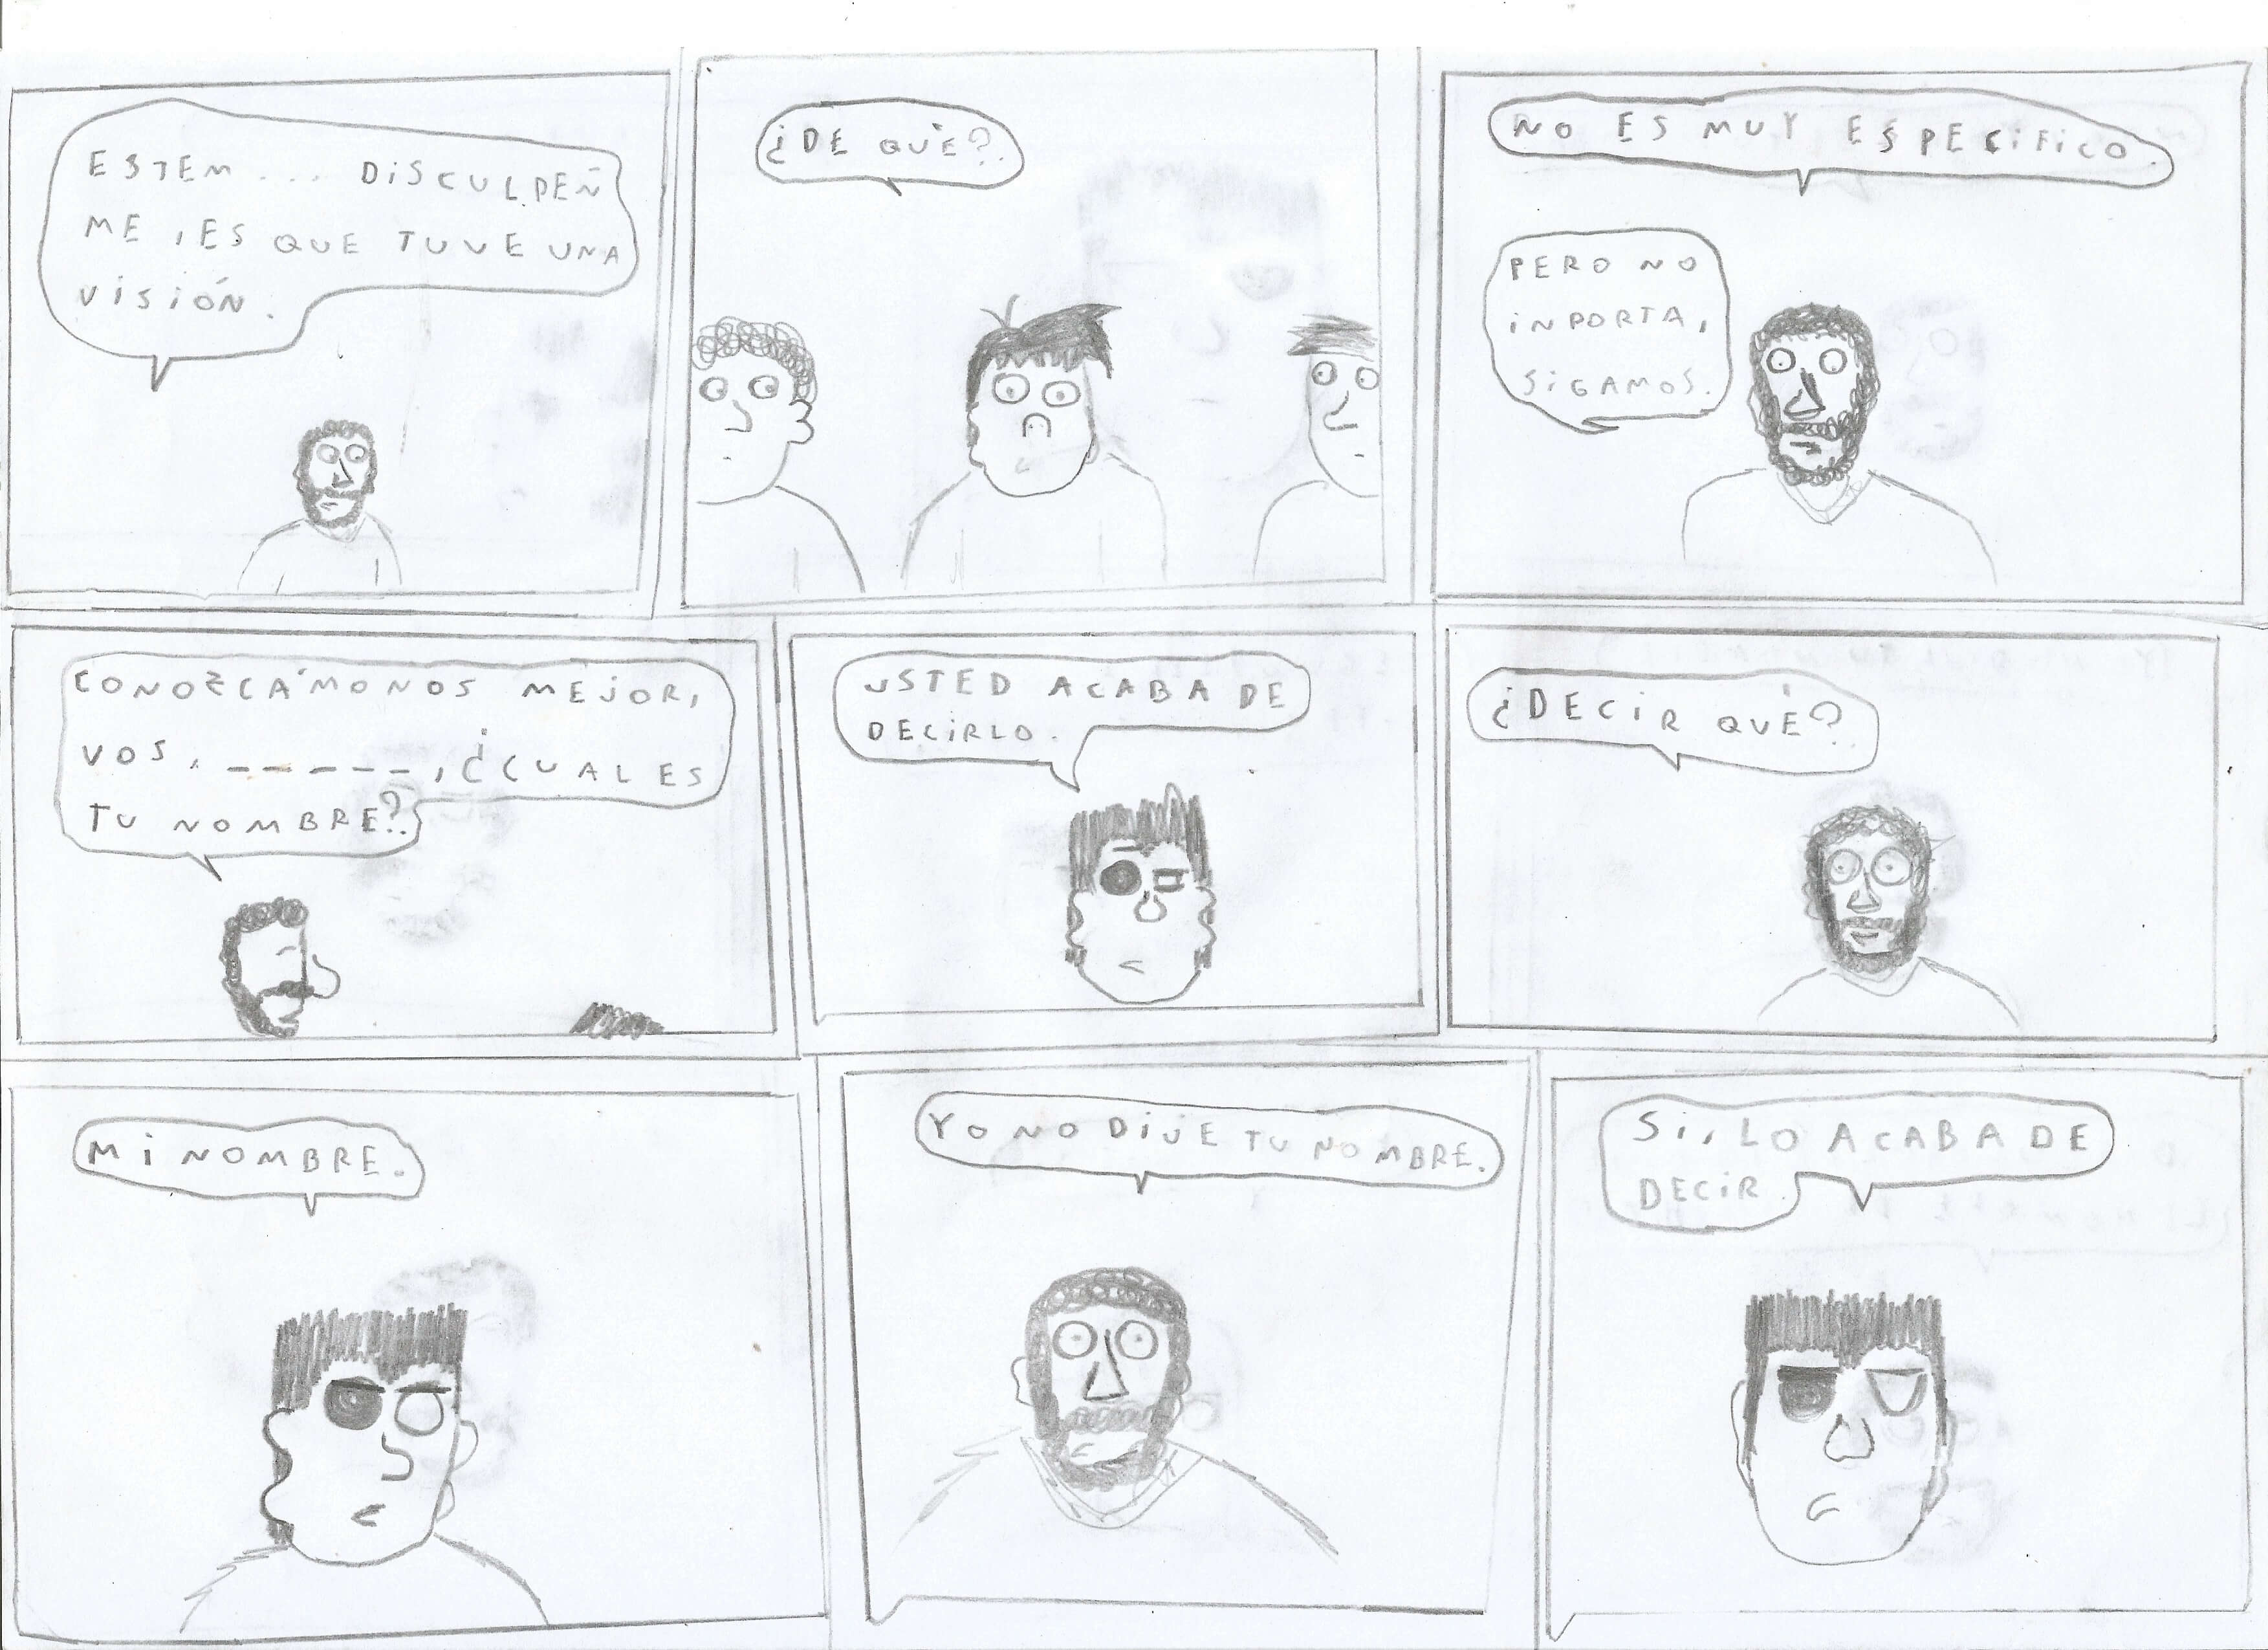 ESTEM... DISCULPEN
ME, ES QUE TUVE UNA
VISIÓN.
¿DE QUÉ?
NO ES MUY ESPECIFICO.
PERO NO
INPORTA,
SIGAMOS.
CONOZCÁMONOS MEJOR,
VOS, _ _ _ _ _, ¿CUAL ES
TU NOMBRE?
USTED ACABA DE
DECIRLO.
¿DECIR QUÉ?
MI NOMBRE.
YO NO DIJE TU NOMBRE.
SI, LO ACABA DE
DECIR.